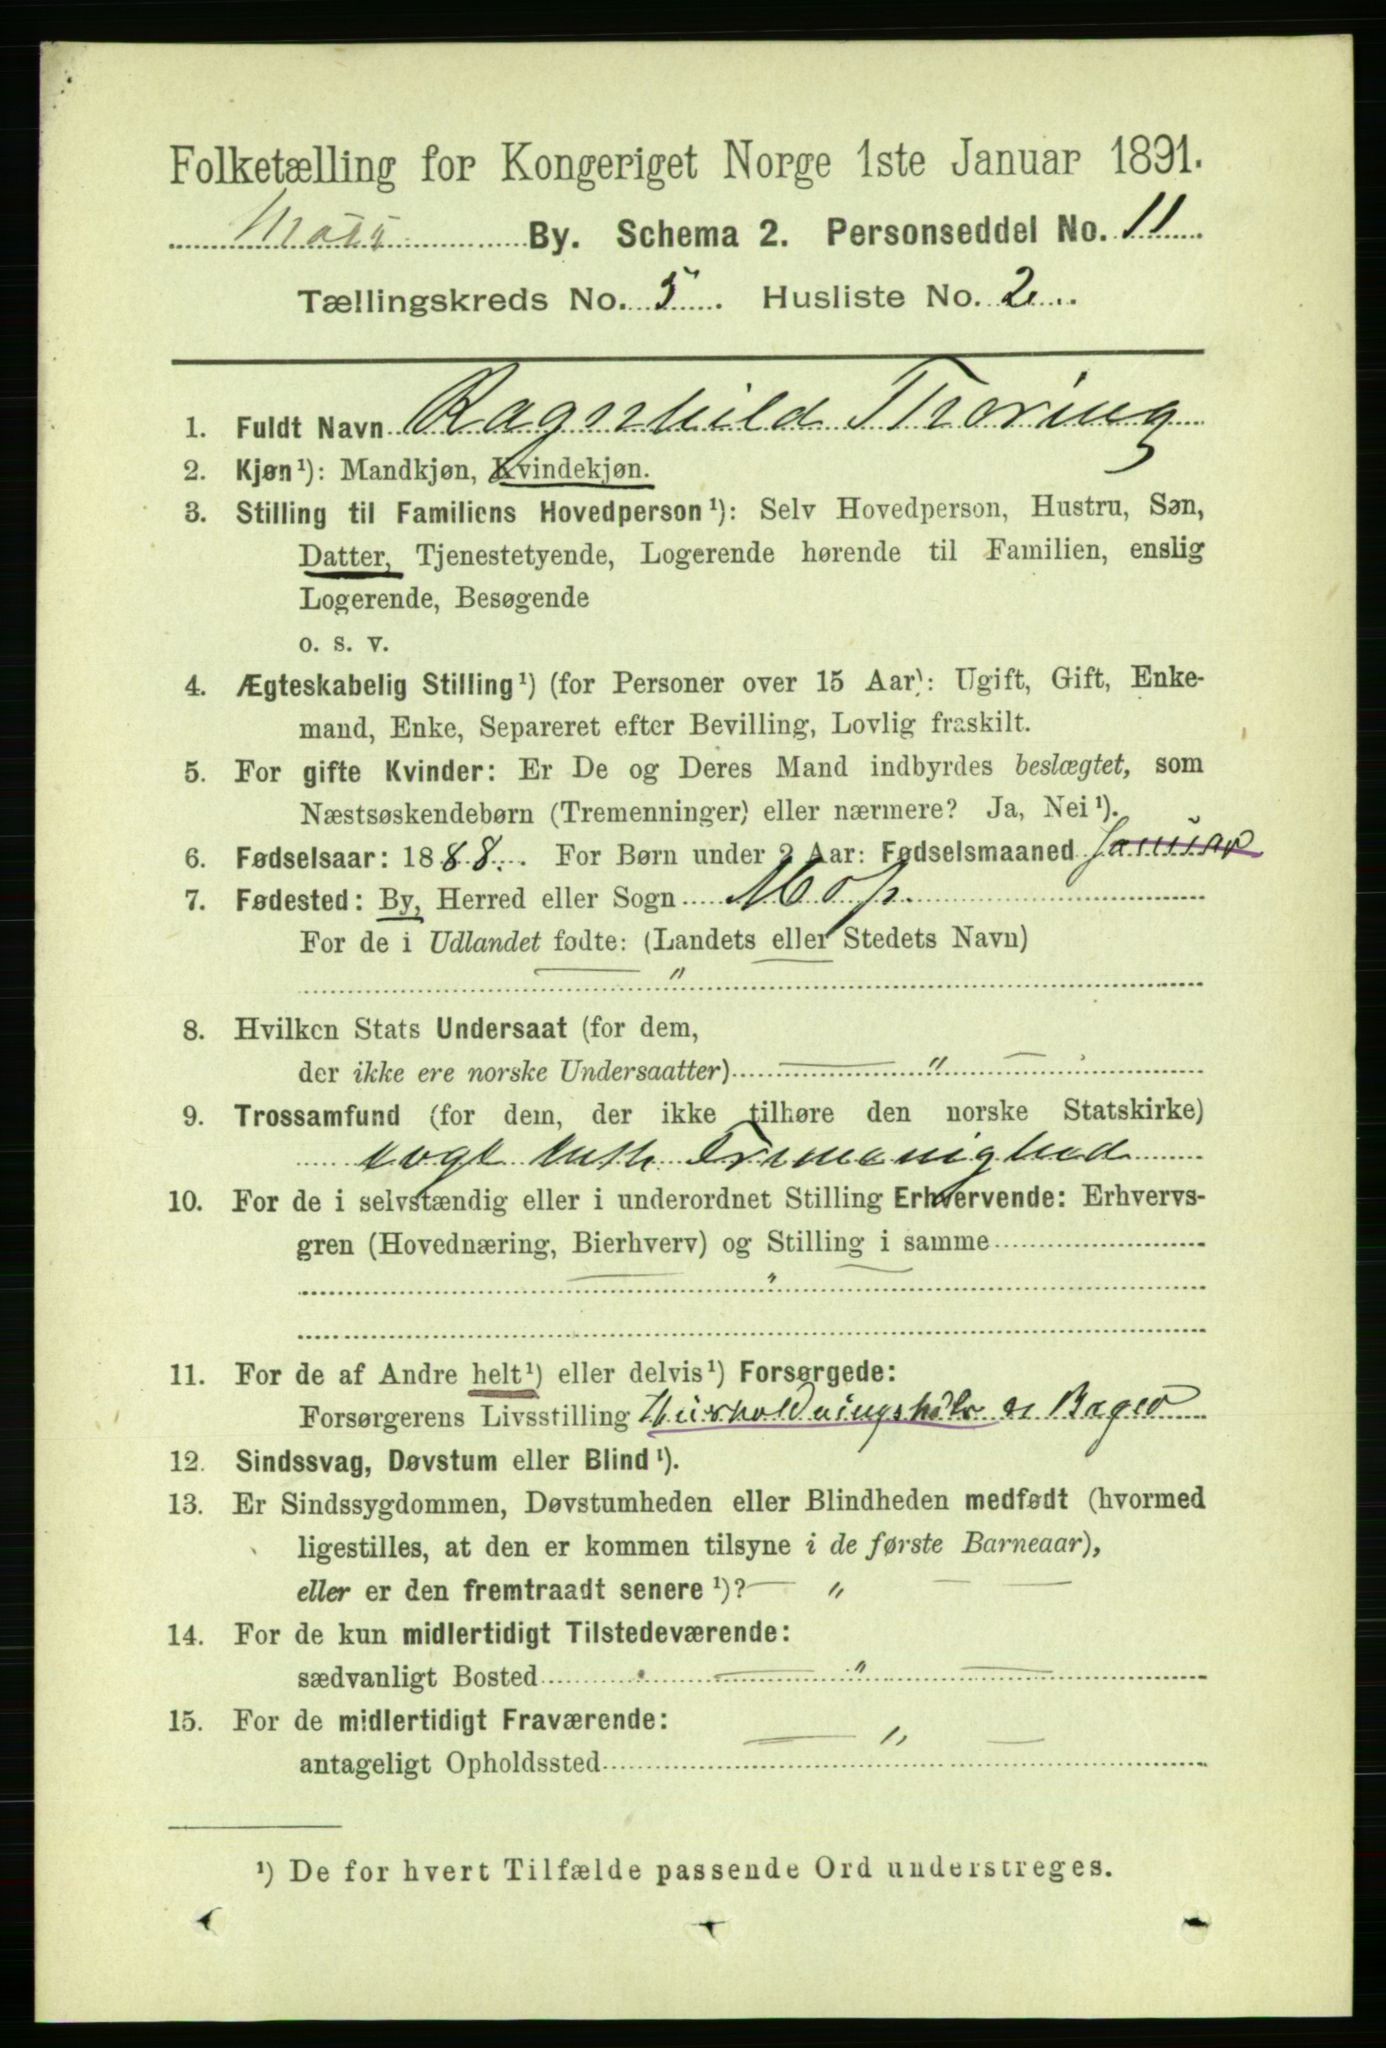 Folketælling for Kongeriget Norge 1ste Januar 1891.
Moss By. Schema 2. Personseddel No. 11
Tællingskreds No. 5. Husliste No. 2.
1. Fuldt Navn Ragnhild Thoring
2. Kjøn¹): Mandkjøn, Kvindekjøn.
3. Stilling til Familiens Hovedperson¹): Selv Hovedperson, Hustru, Søn,
Datter, Tjenestetyende, Logerende hørende til Familien, enslig
Logerende, Besøgende
o. s. v.
4. Ægteskabelig Stilling¹) (for Personer over 15 Aar): Ugift, Gift, Enke-
mand, Enke, Separeret efter Bevilling, Lovlig fraskilt.
5. For gifte Kvinder: Er De og Deres Mand indbyrdes beslægtet, som
Næstsøskendebørn (Tremenninger) eller nærmere? Ja, Nei¹).
6. Fødselsaar: 1888. For Børn under 2 Aar: Fødselsmaaned Januar
7. Fødested: By, Herred eller Sogn Moss
For de i Udlandet fødte: (Landets eller Stedets Navn)
"
8. Hvilken Stats Undersaat (for dem,
der ikke ere norske Undersaatter) "
9. Trossamfund (for dem, der ikke tilhøre den norske Statskirke)
Luth Frimenighed
10. For de i selvstændig eller i underordnet Stilling Erhvervende: Erhvervs-
gren (Hovednæring, Bierhverv) og Stilling i samme
"
11. For de af Andre helt¹) eller delvis¹) Forsørgede:
Forsørgerens Livsstilling Husholdnings Bager
12. Sindssvag, Døvstum eller Blind¹).
13. Er Sindssygdommen, Døvstumheden eller Blindheden medfødt (hvormed
ligestilles, at den er kommen tilsyne i de første Barneaar),
eller er den fremtraadt senere¹)? "
14. For de kun midlertidigt Tilstedeværende:
sædvanligt Bosted "
15. For de midlertidigt Fraværende:
antageligt Opholdssted "
¹) De for hvert Tilfælde passende Ord understreges.